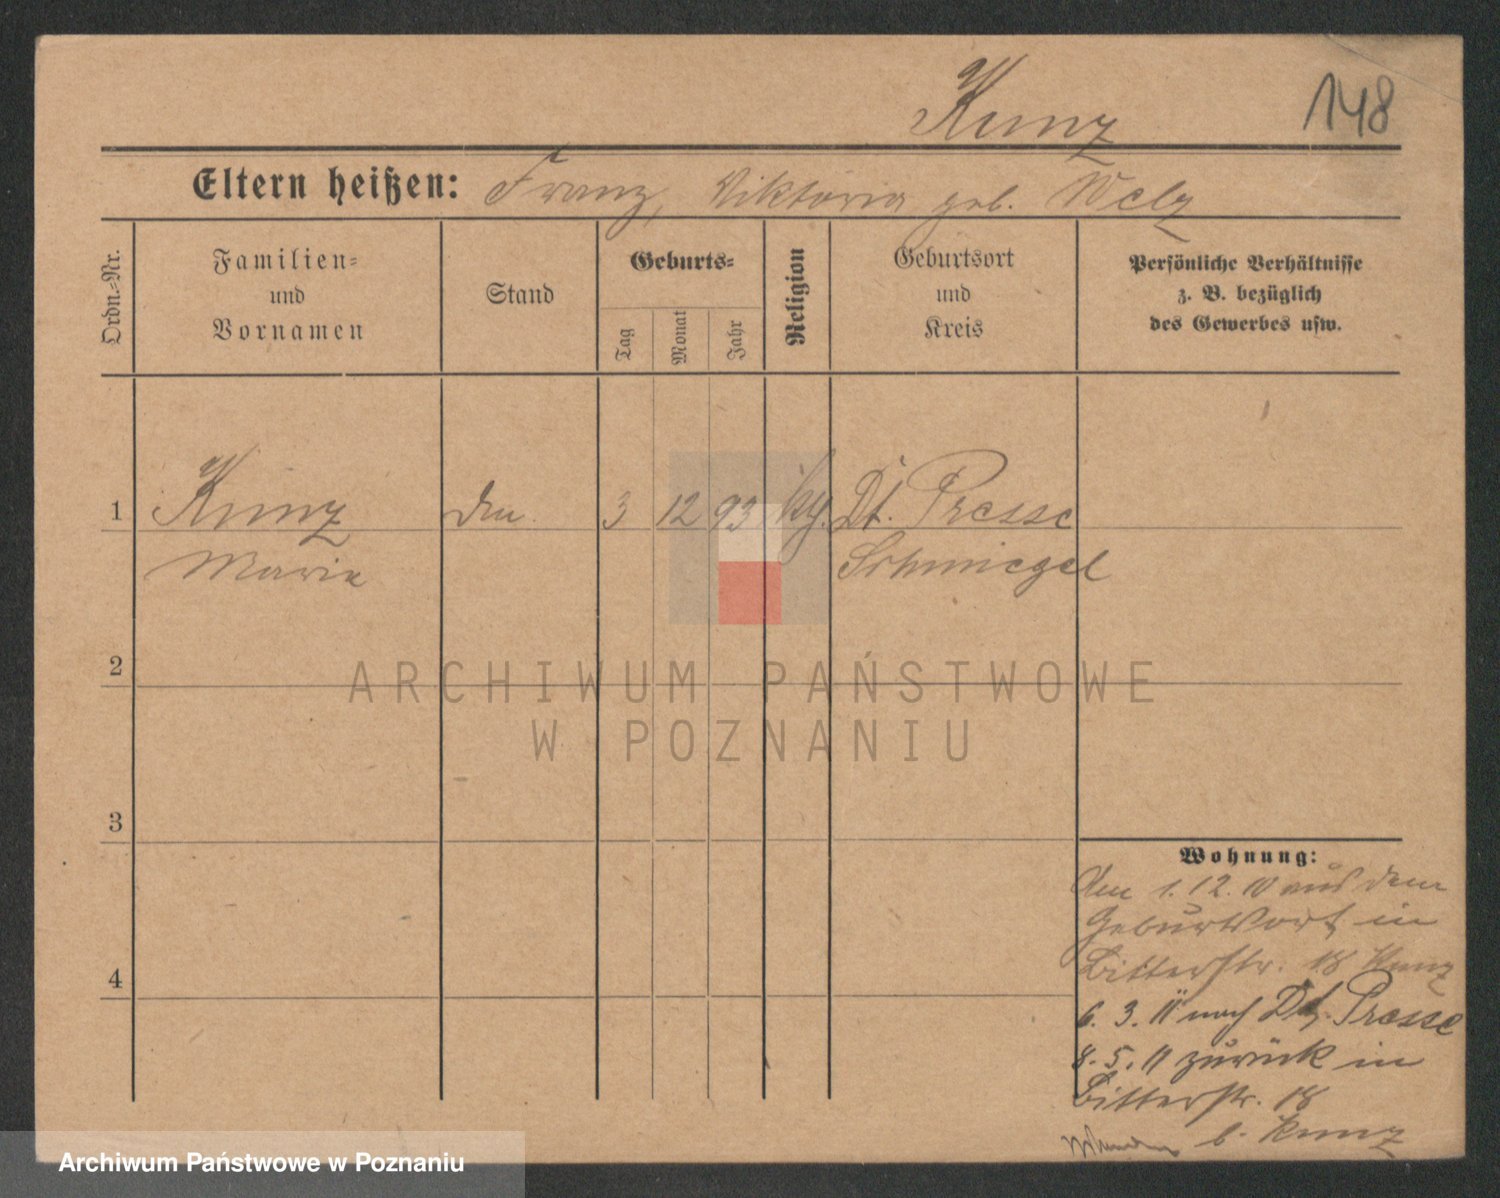 Kunz
148
Eltern heißen: Franz, Viktoria geb. Welz
Ordn.-Nr.
Familien-
und
Vornamen
Stand
Geburts-
Tag
Monat
Jahr
Religion
Geburtsort
und
Kreis
Persönliche Verhältnisse
z. B. bezüglich
des Gewerbes usw.
1 Kunz 3 12 93 Dt. Presse
Marie Schmiegel
2
3
4
Wohnung:
Am 1. 12. 10 aus dem
Geburtsort in
Bitterstr. 18 Kunz
6. 3. 11 nach Dt. Presse
8. 5. 11 zurück in
Bitterstr. 18
b. Kunz
ARCHIWUM PAŃSTWOWE
W POZNANIU
Archiwum Państwowe w Poznaniu